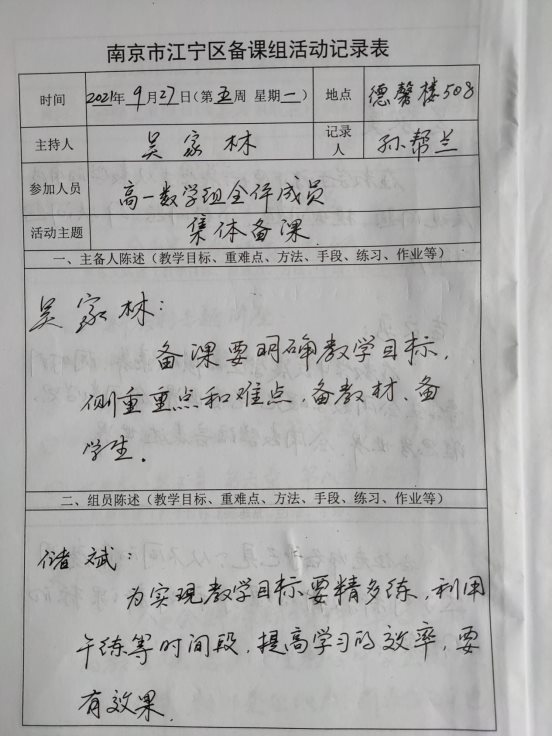 南京市江宁区备课组活动记录表
时间 2021年9月27日(第五周 星期一) 地点 德馨楼508
主持人 吴家林 记录人 孙帮兰
参加人员 高一数学组全体成员
活动主题 集体备课
一、主备人陈述(教学目标、重难点、方法、手段、练习、作业等)
吴家林:
备课要明确教学目标,
侧重重点和难点,备教材、备
学生.
二、组员陈述(教学目标、重难点、方法、手段、练习、作业等)
储斌:
为实现教学目标要精多练,利用
午练等时间段,提高学习的效率,要
有效果.